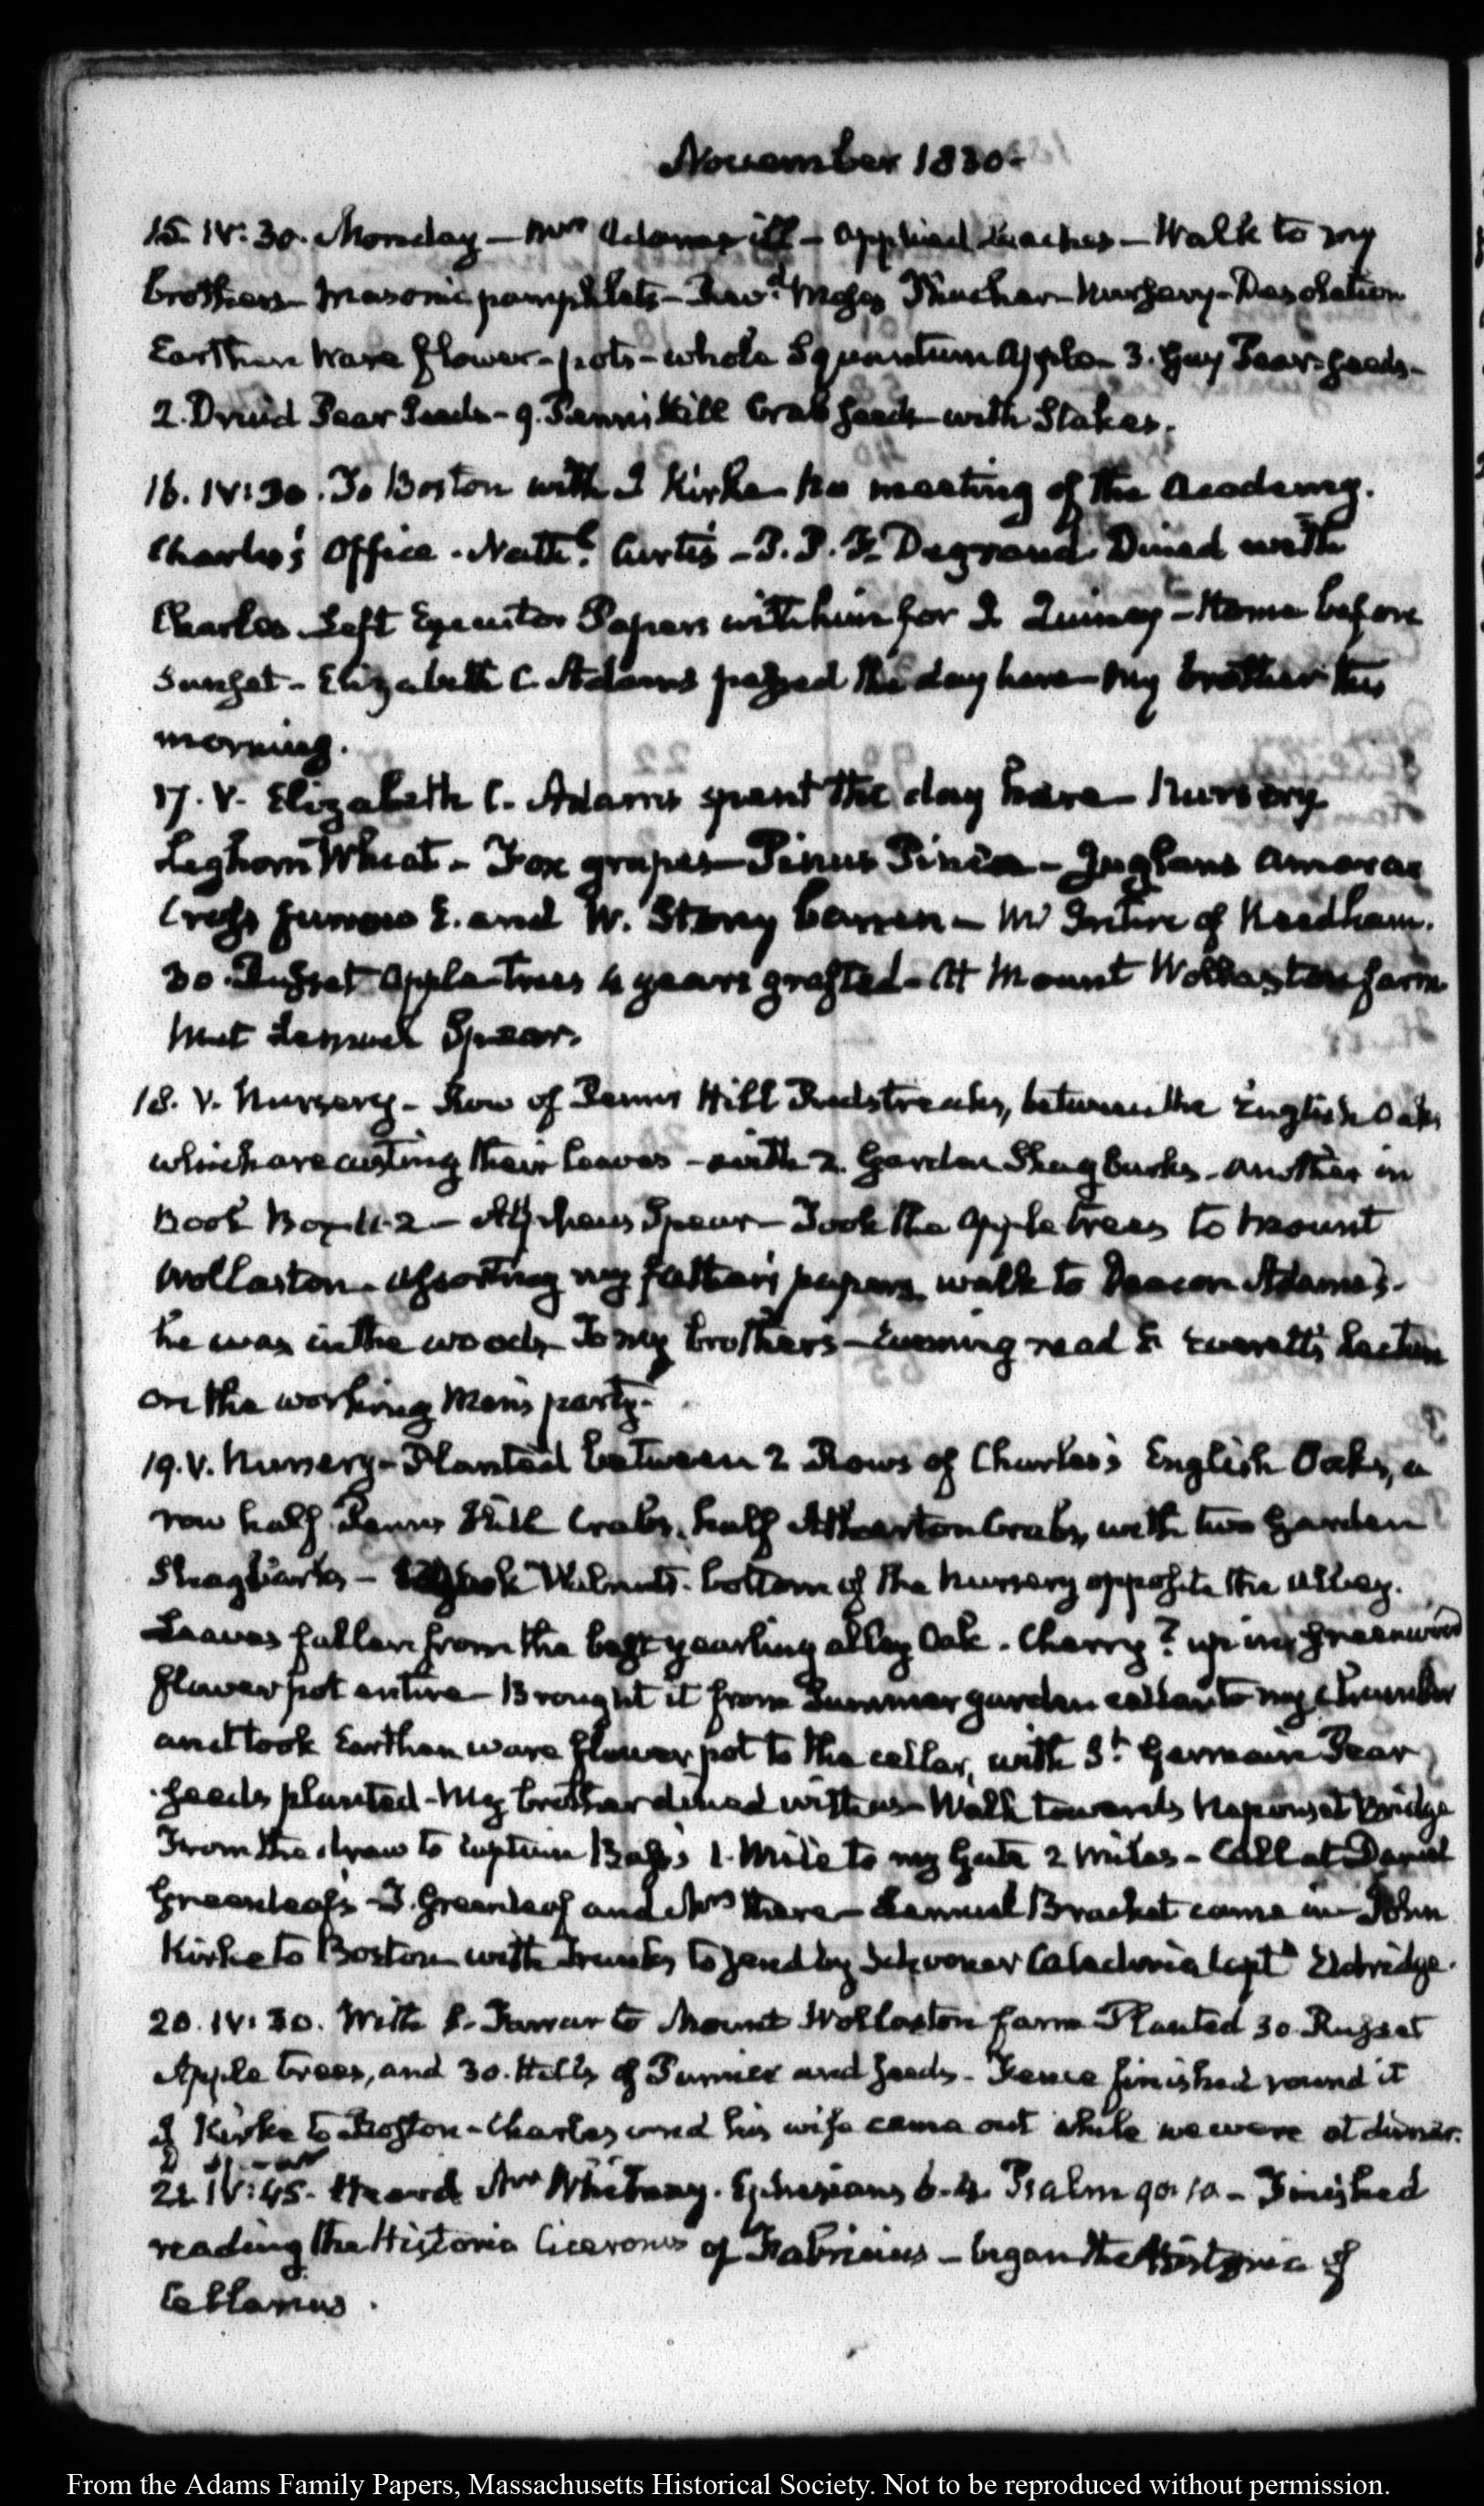 November 1830.
15. IV:30. Monday — Mrs Adams ill — applied leaches — Walk to my
brothers — Masonic pamphlets — Moses Thacher — Nursery — Desolation
Earthen Ware flower-pots — whole Squantum Apple — 3. Guy Pear-seeds —
2. Druid Pear Seeds — 9. Penn's Hill Crab seeds — with Stakes.
16. IV:30. To Boston with J Kirke — no meeting of the Academy.
Charles's Office. Nathl. Curtis — P. P. F. Degrand. Dined with
Charles. Left Executor Papers with him for J. Quincy — Home before
Sunset — Elizabeth C. Adams passed the day here — My brother this
morning.
17. V. Elizabeth C. Adams spent the day here — Nursery
Leghorn Wheat — Fox grapes — Pinus Pinea — Juglans
Cross furrows E. and W. Stony barren — Mr Intire of Needham.
30. Russet apple-trees 4 years grafted — At Mount Wollaston farm
met Lemuel Spear.
18. V. Nursery — Row of Penn's Hill Redstreaks, between the English Oaks
which are casting their leaves — with 2. Garden Shagbarks — another in
Boot Box N. 2 — Alpheus Spear — Took the apple trees to Mount
Wollaston — assorting my father's papers, walk to Deacon Adams's.
he was in the woods — To my brothers — Evening read E. Everett's Lecture
on the working Men's party.
19. V. Nursery — Planted between 2 Rows of Charles's English Oaks, a
row half Penns Hill Crabs, half Atherton Crabs, with two Garden
Shagbarks — Walnuts. bottom of the Nursery opposite the alley.
Leaves fallen from the best yearling alley Oak. Cherry? up in my greenwood
flower pot entire — Brought it from Summer garden cellar to my chamber
and took Earthen ware flower pot to the cellar, with St. Germain Pear
seeds planted — My brother dined with us — Walk towards Neponset Bridge
From the draw to Captain Bass's 1. Mile to my Gate 2 miles — Call at Daniel
Greenleaf's — T. Greenleaf and Mrs there — Lemuel Bracket came in — John
Kirke to Boston with Trunks to send by Schooner Caledonia Capt. Eldridge.
20. IV:30. With P. Farrar to Mount Wollaston farm — Planted 30 Russet
Apple trees, and 30. Hills of Pumice and seeds — Fence finished round it
J Kirke to Boston — Charles and his wife came out while we were at dinner.
21. IV:45. Heard Mr Whitney. Ephesians 6.4. Psalm 90.10 — Finished
reading the Historia Ciceronis of Fabricius — began the Historia of